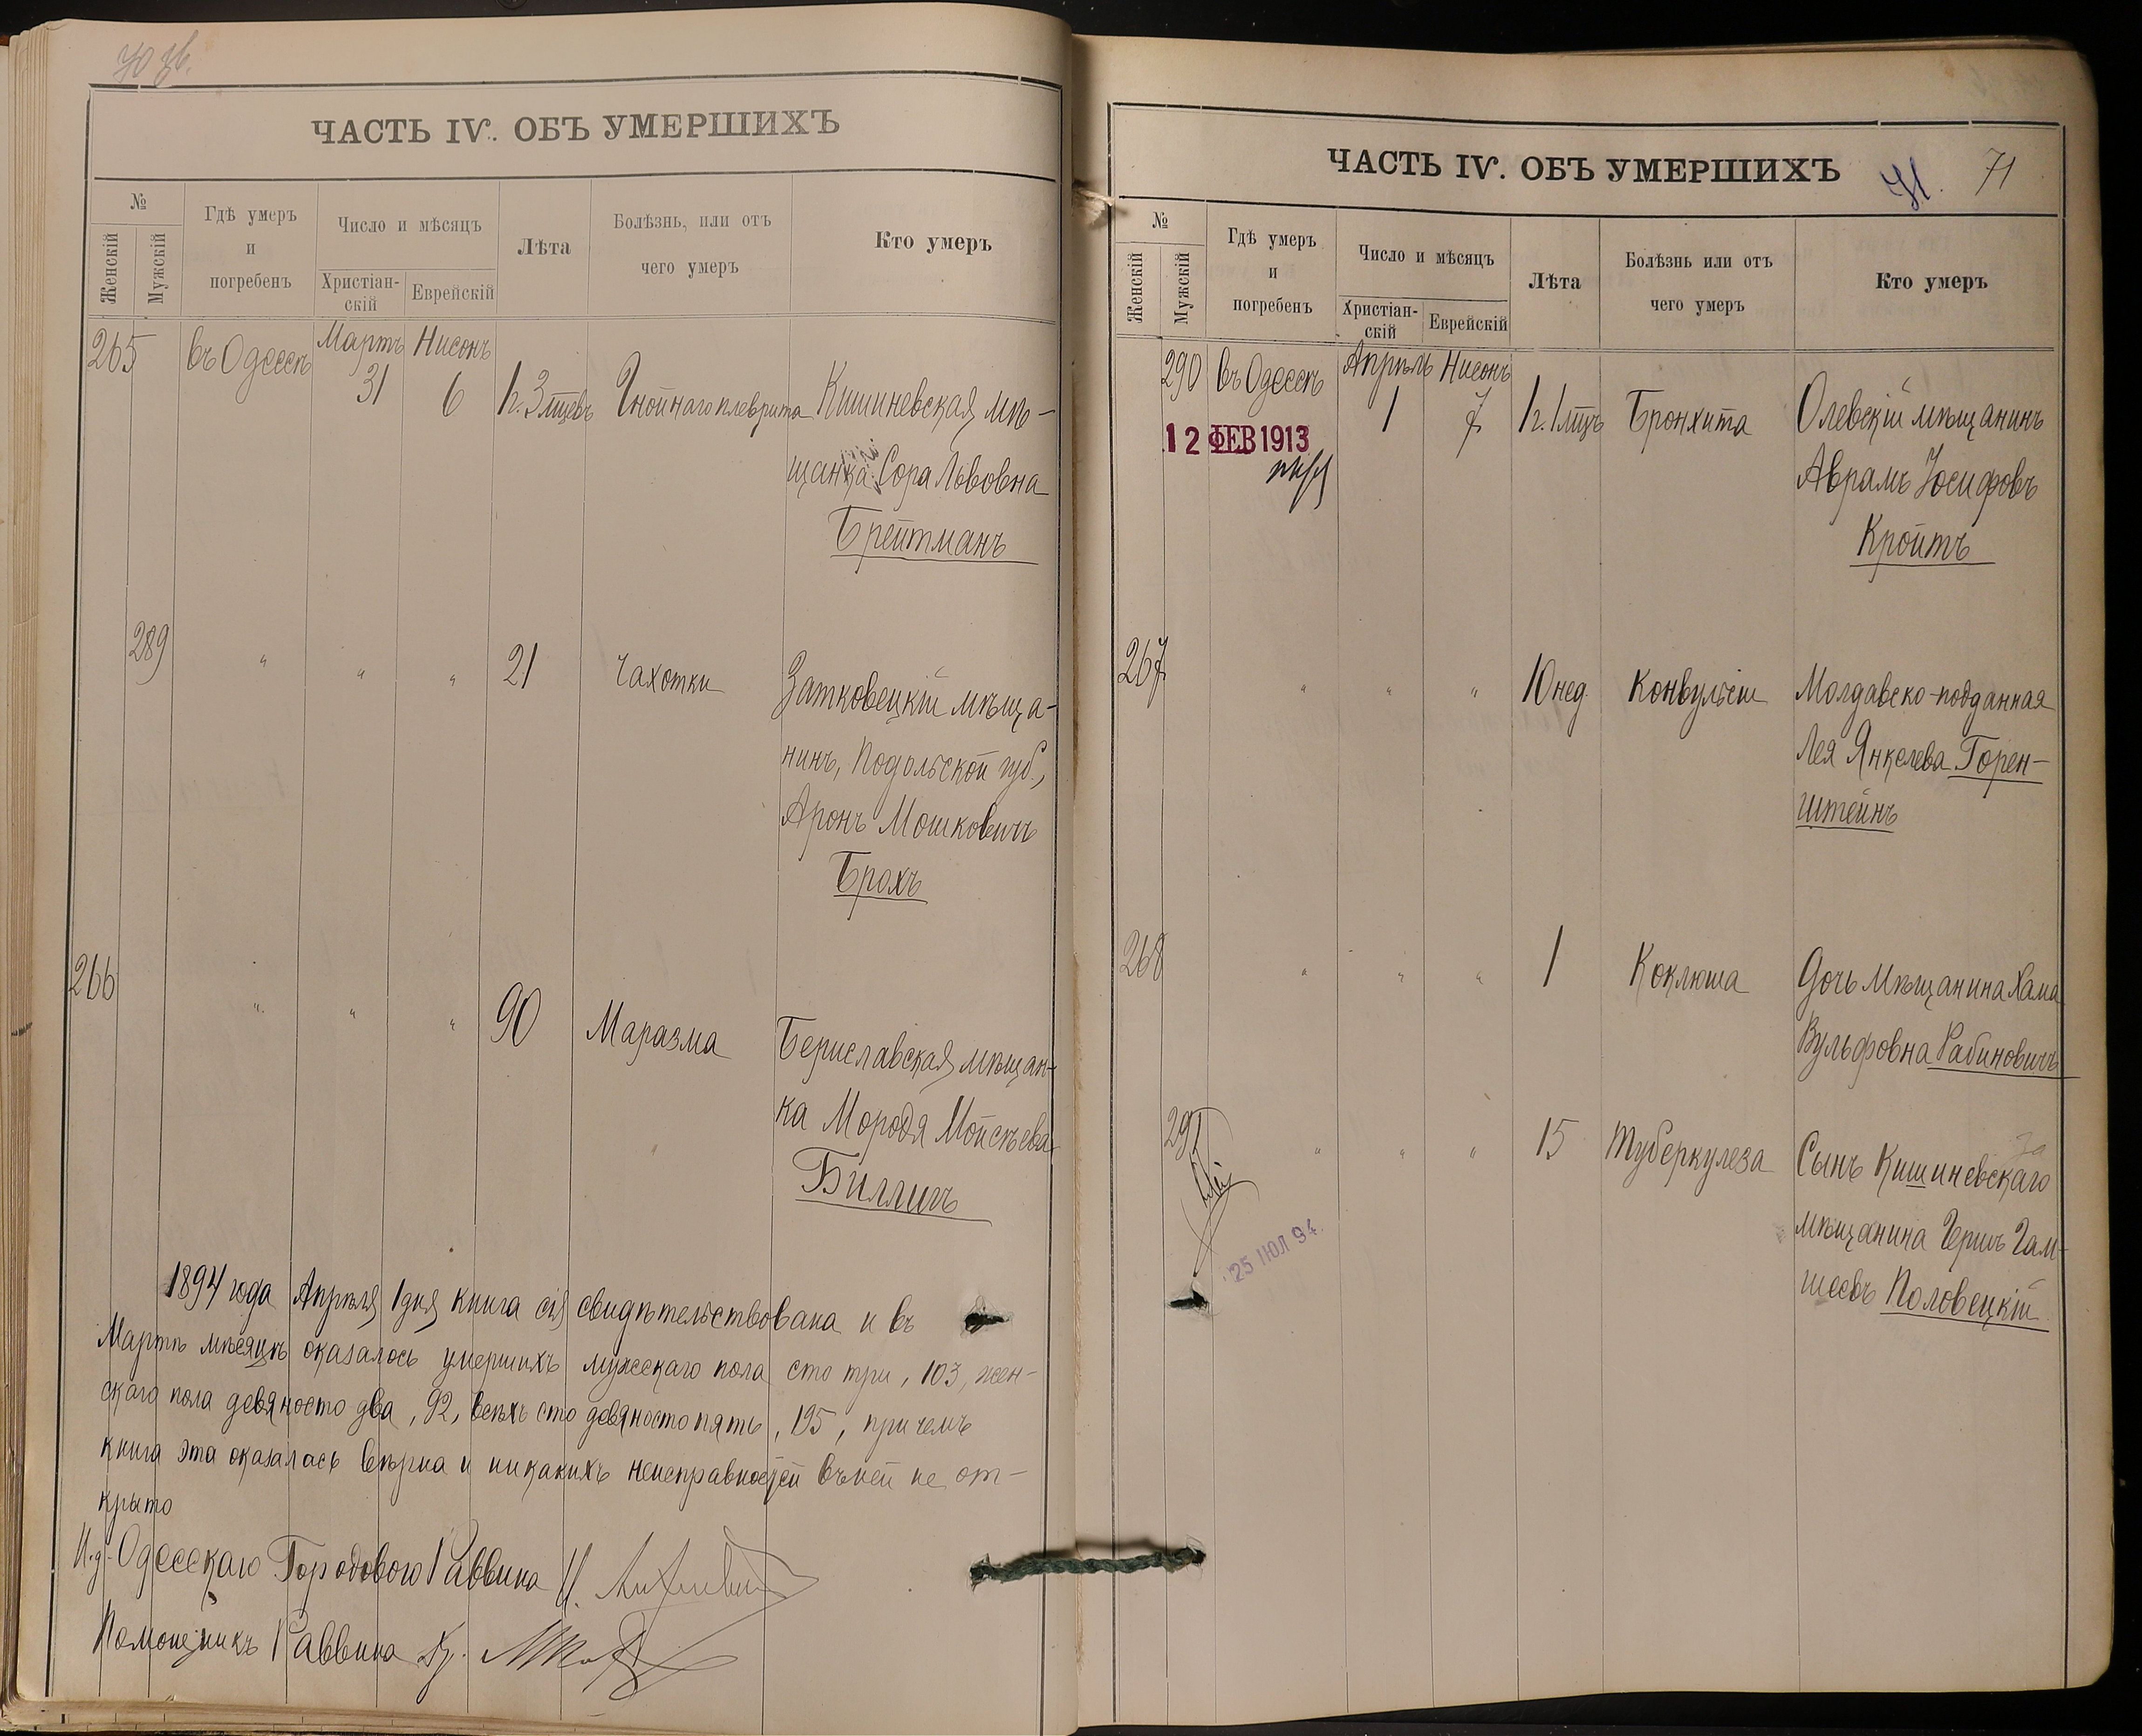 70 об.
ЧАСТЬ IV. ОБЪ УМЕРШИХЪ
№
Женскій
Мужскій
Гдѣ умеръ
и
погребенъ
Число и мѣсяцъ
Христіан-
скій
Еврейскій
Лѣта
Болѣзнь, или отъ
чего умеръ
Кто умеръ
265 въ Одессѣ Мартъ Нисонъ
31 6 1 г. 3 мцевъ Гнойнаго плеврита Кишиневская мѣ-
щанка Сора Львовна
Брейтманъ
289 " " " 21 Чахотки Затковецкій мѣща-
нинъ, Подольской губ.,
Аронъ Мошковичъ
Брохъ
266 " " " 90 Маразма Бериславская мѣщан-
ка Мородя Мойсѣева
Биллигъ
1894 года Апрѣля 1 дня книга сія свидѣтельствована и въ
Мартѣ мѣсяцѣ оказалось умершихъ мужескаго пола сто три, 103, жен-
скаго пола девяносто два, 92, всѣхъ сто девяносто пять, 195, причемъ
книга эта оказалась вѣрна и никакихъ неисправностей въ ней не от-
крыто
И.д. Одесскаго Городового Раввина
Помощникъ Раввина
ЧАСТЬ IV. ОБЪ УМЕРШИХЪ
71. 71
№
Женскій
Мужскій
Гдѣ умеръ
и
погребенъ
Число и мѣсяцъ
Христіан-
скій
Еврейскій
Лѣта
Болѣзнь или отъ
чего умеръ
Кто умеръ
290 въ Одессѣ Апрѣль Нисонъ
1 7 1 г. 1 мцъ Бронхита Олевскій мѣщанинъ
12 ФЕВ 1913
Аврамъ Іосифовъ
Кройтъ
267 " " " 10 нед. Конвульсіи Молдавско-подданная
Лея Янкелева Горен-
штейнъ
268 " " " 1 Коклюша Дочь мѣщанина Хама
Вульфовна Рабиновичъ
291 " " " 15 Туберкулеза Сынъ Кишиневскаго
мѣщанина Гершъ Гам-
шеевъ Половецкій
25 ІЮЛ 94.